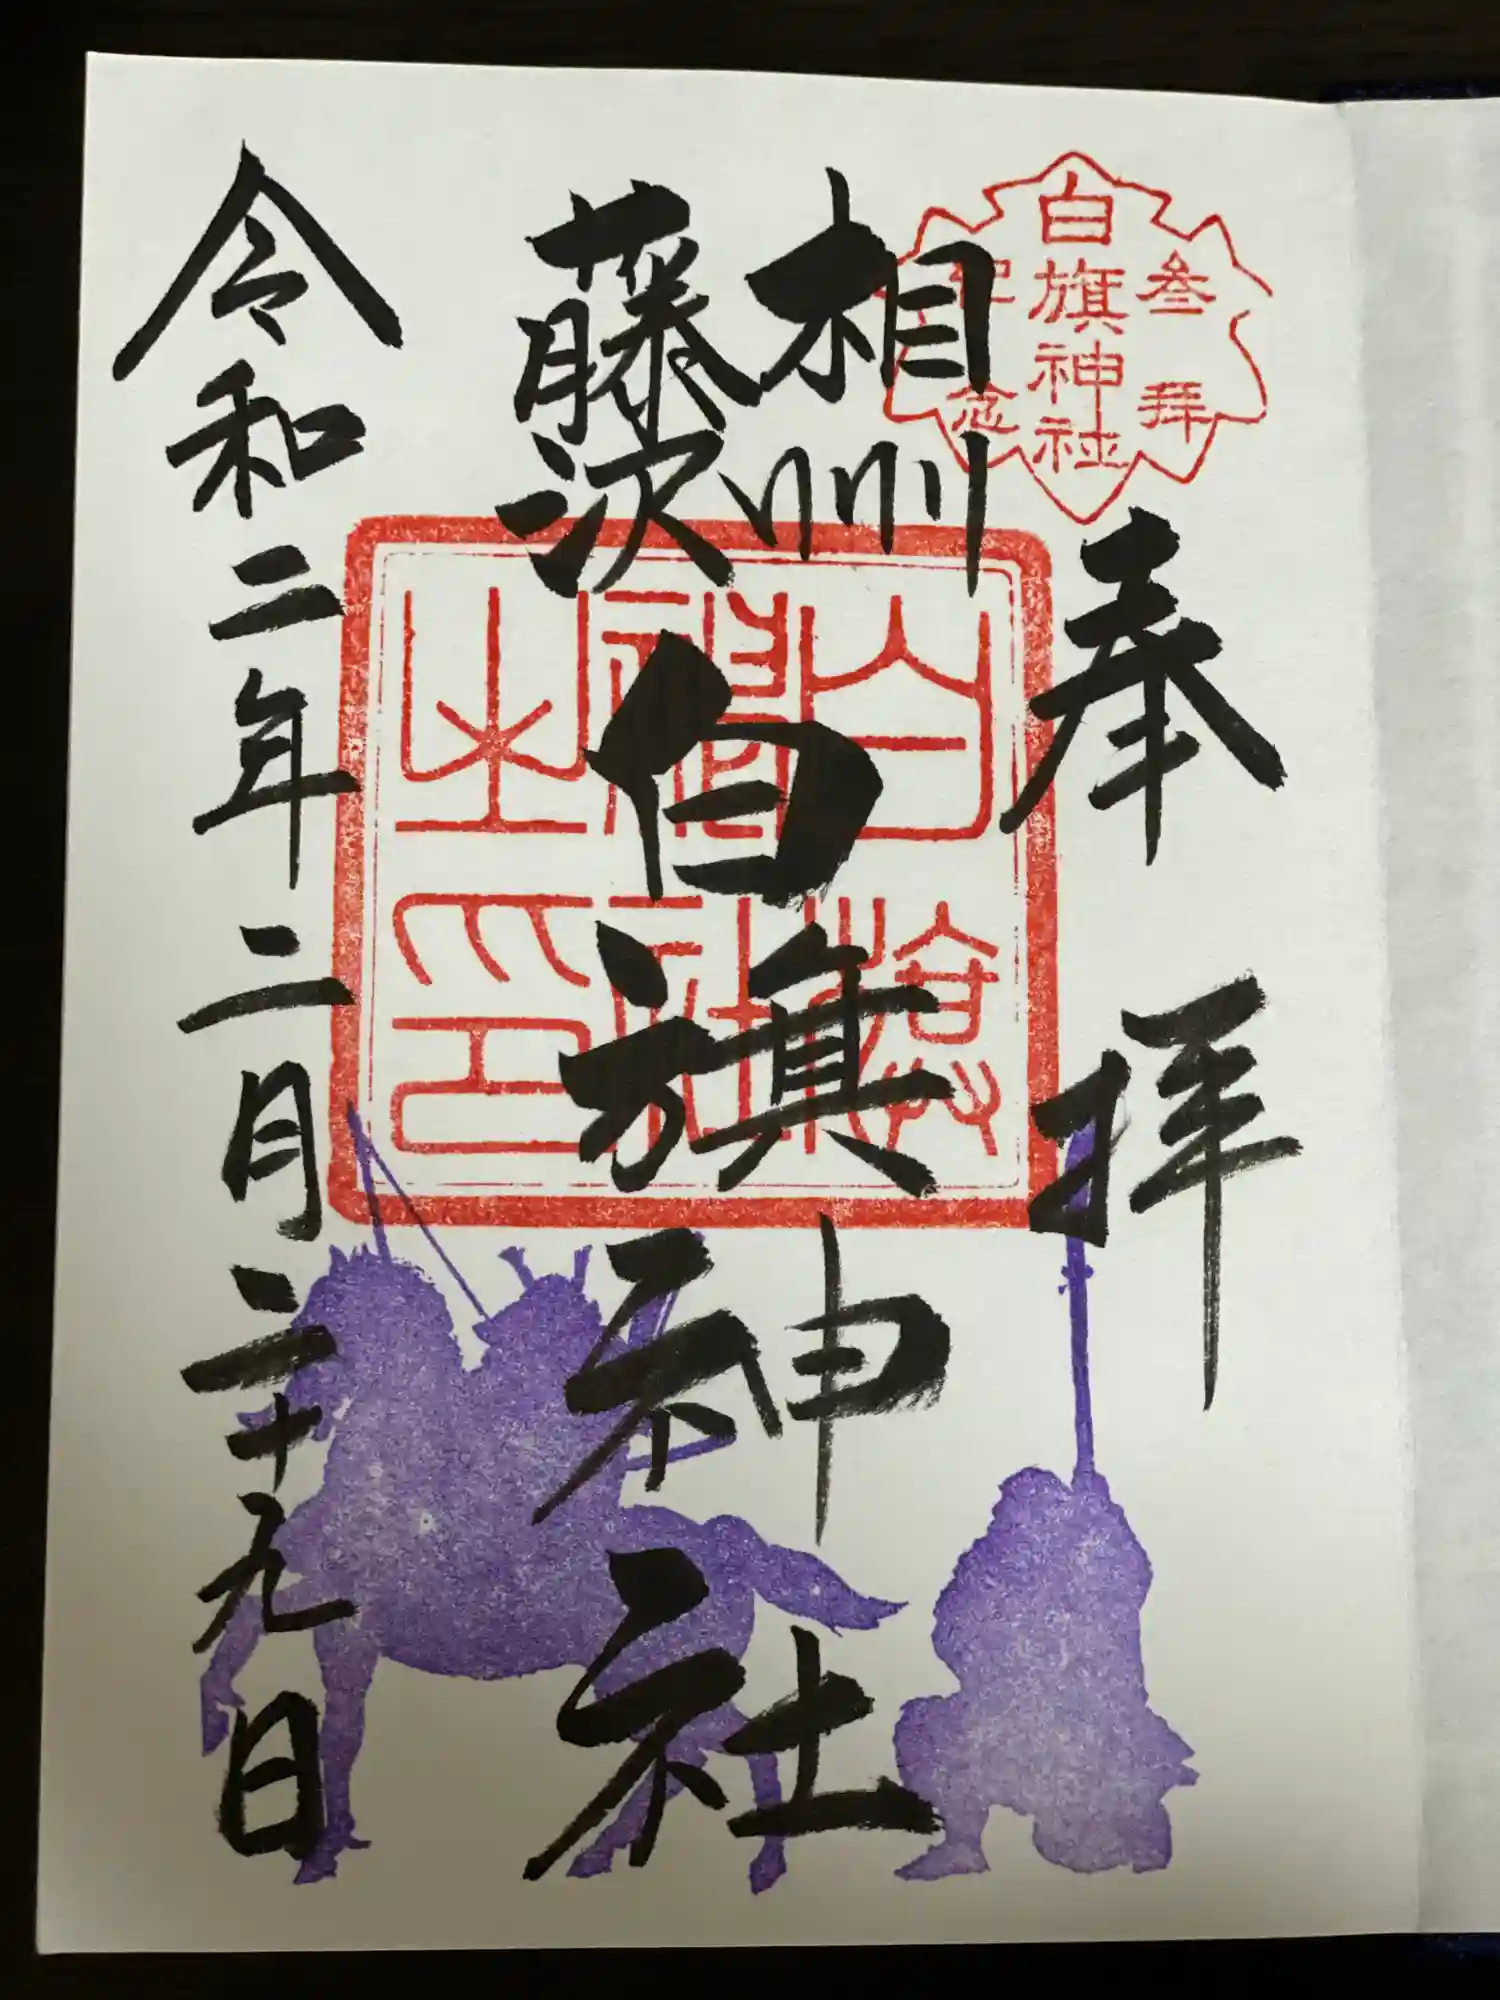 奉拝
相州
藤沢
白旗神社
令和二年二月二十九日
叁拝
白旗神社
記念
白旗神社之印